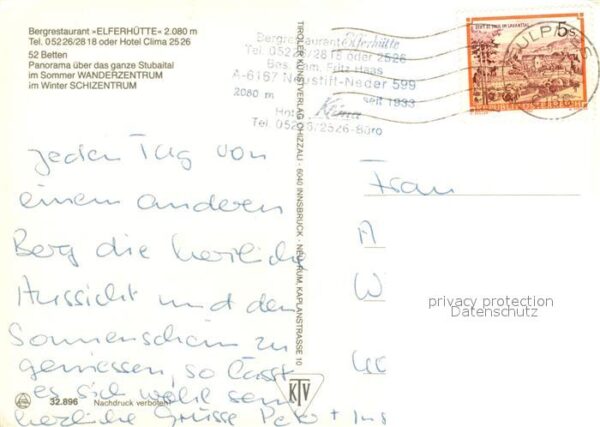 Bergrestaurant »ELFERHÜTTE« 2.080 m
Tel. 05226/2818 oder Hotel Clima 2526
52 Betten
Panorama über das ganze Stubaital
im Sommer WANDERZENTRUM
im Winter SCHIZENTRUM
Bergrestaurant Elferhütte
Tel. 05226/2818 oder 2526
Bes. Fam. Fritz Haas
A-6167 Neustift-Neder 599
2080 m seit 1933
Hotel Klima
Tel. 05226/2526-Büro
5S
TIROLER KUNSTVERLAG CHIZZALI · 6040 INNSBRUCK - NEU-RUM, KAPLANSTRASSE 10
jeden Tag von
einem anderen
Berg die herrliche
Aussicht und den
Sonnenschein zu
geniessen, so lässt
es sich wohl sein
herzliche Grüsse Peter +
Frau
A
W
privacy protection
Datenschutz
KTV
32.896 Nachdruck verboten!